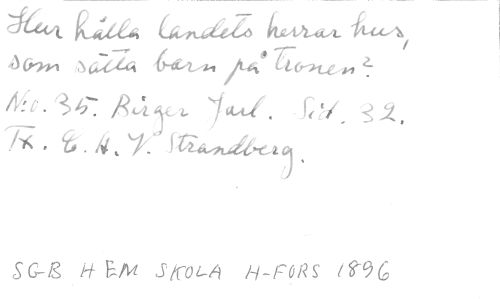 Hur hålla landets herrar hus,
som sätta barn på tronen?
N:o. 35. Birger Jarl. Sid. 32.
Tx. C. A. V. Strandberg.
SGB HEM SKOLA H-FORS 1896